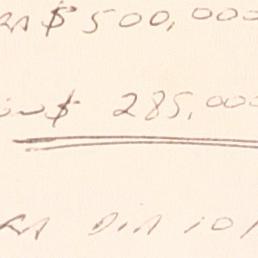 RA $500,000
$ 285,000
RA DIA 10/